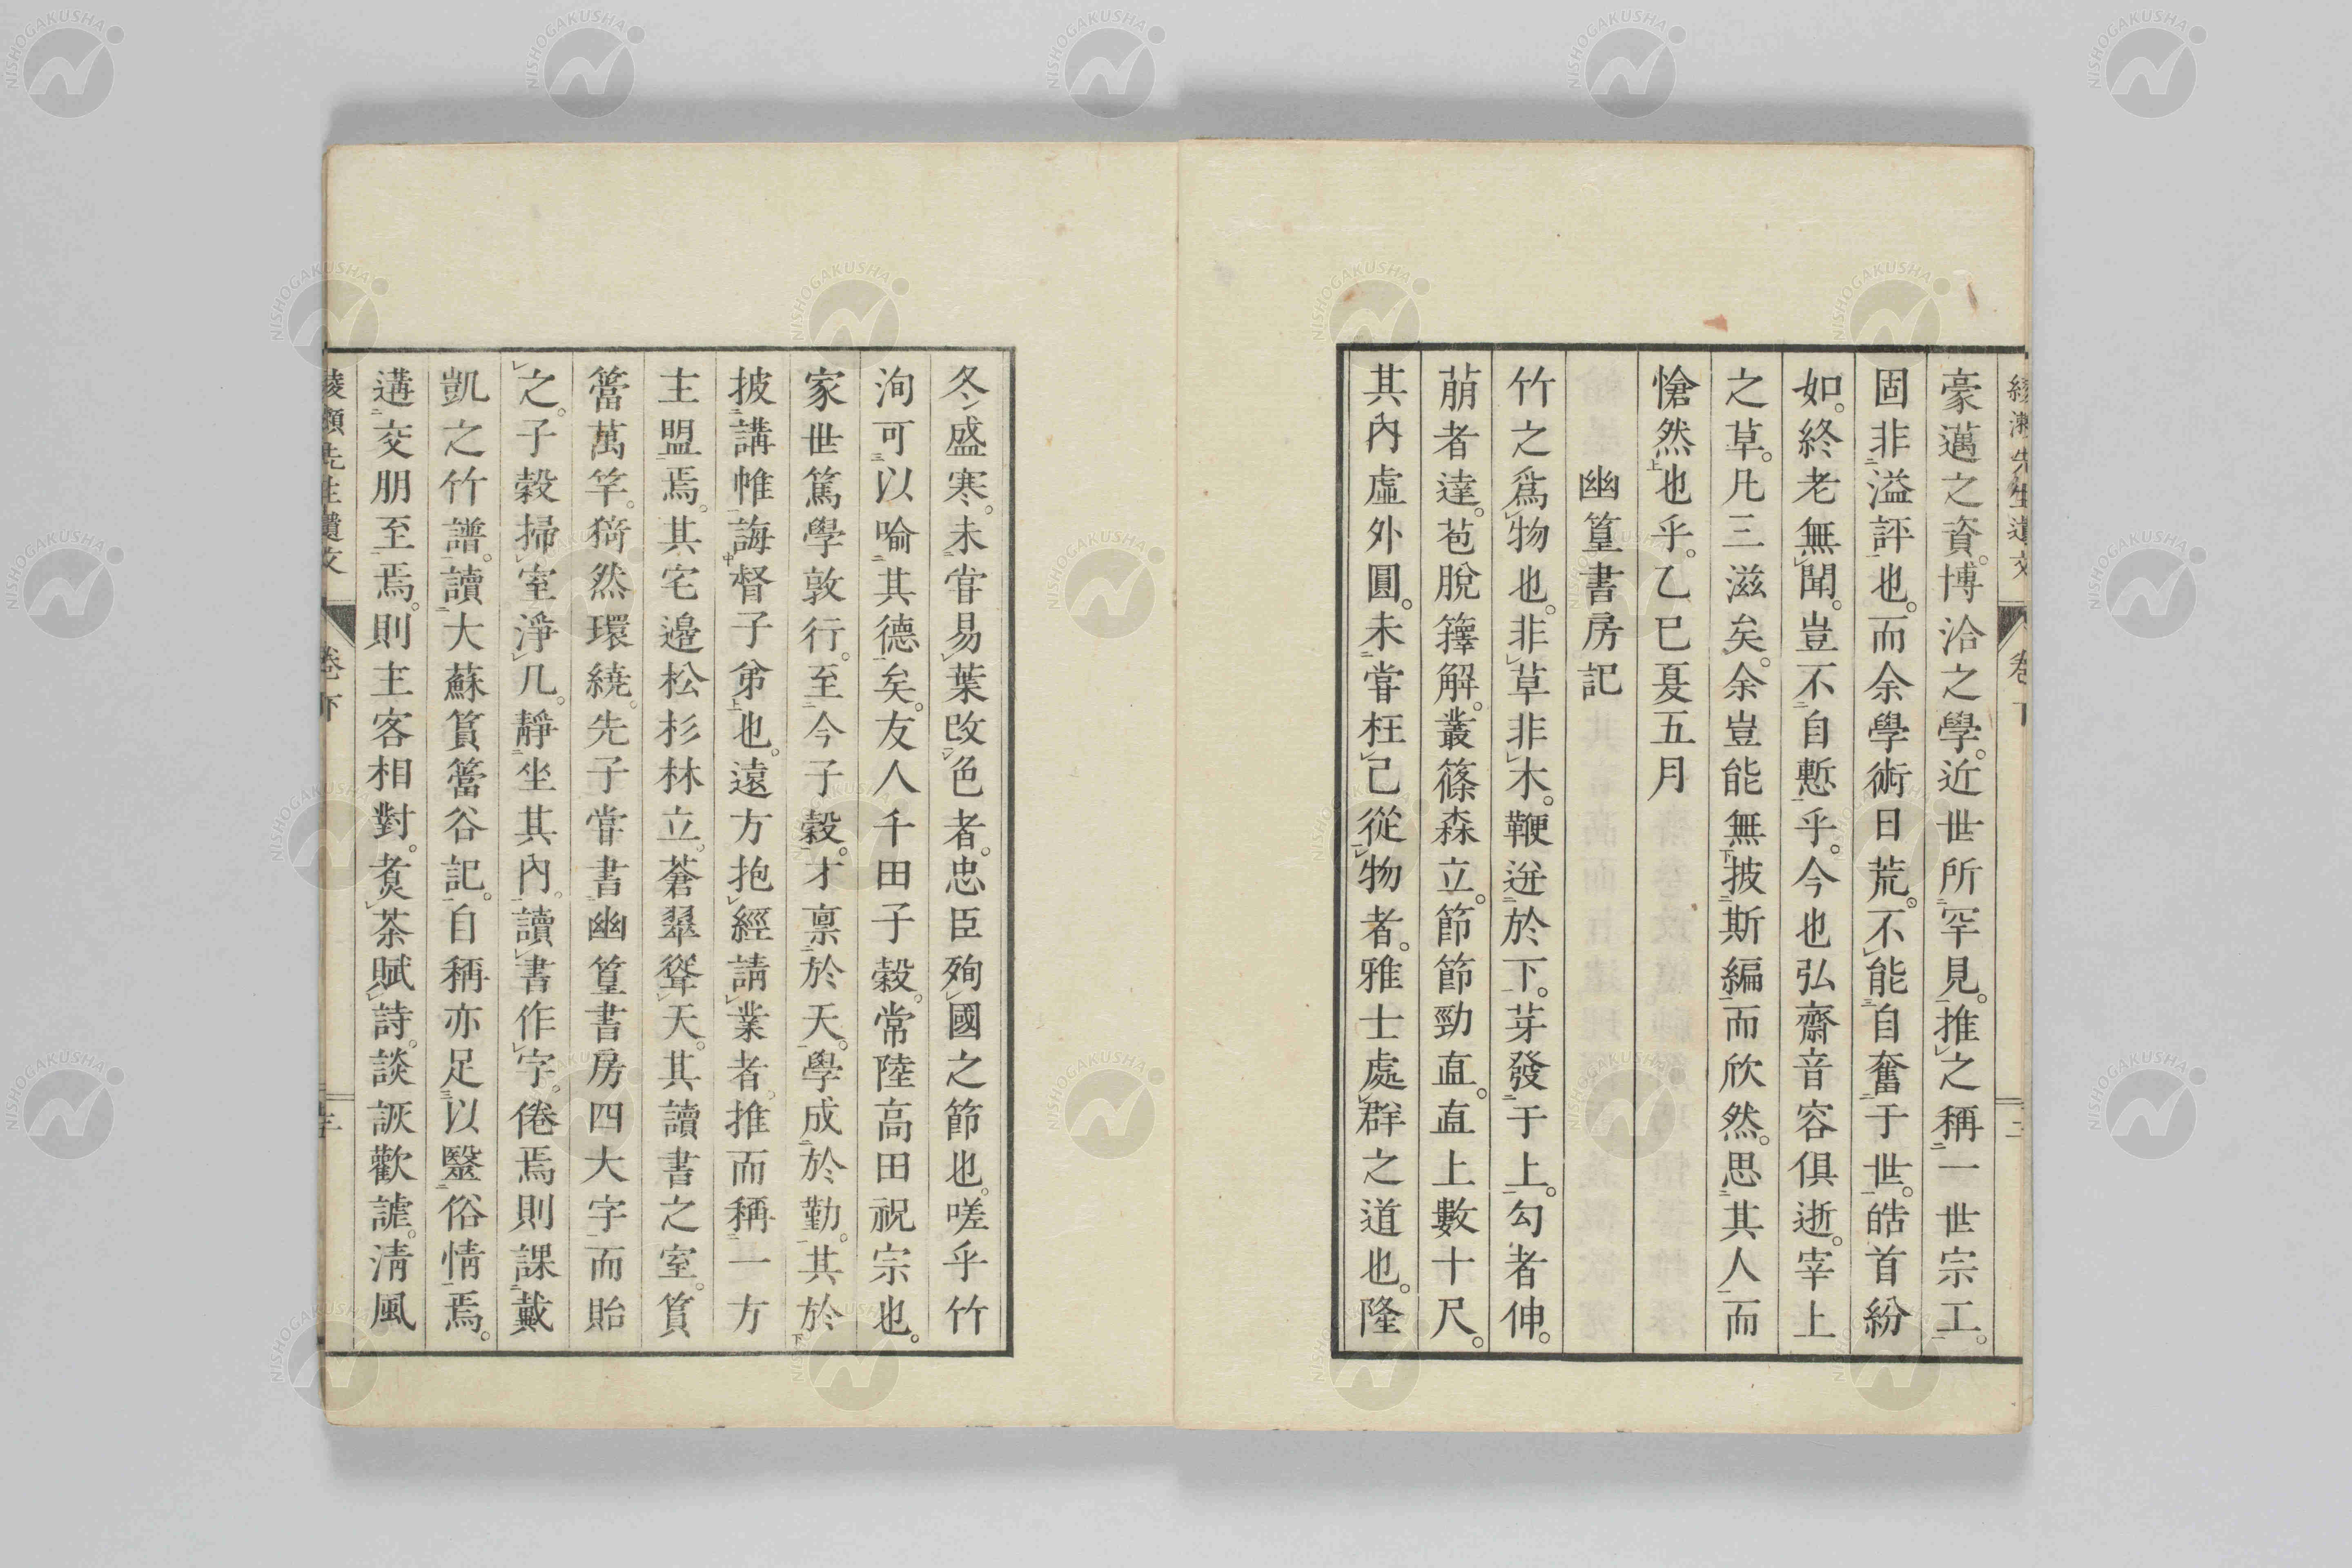 豪邁之資。博洽之學。近世所罕見。推之稱一世宗工。
固非溢評也。而余學術日荒。不能自奮于世。皓首紛
如。終老無聞。豈不自慙乎。今也弘齋音容俱逝。宰上
之草。凡三滋矣。余豈能無披斯編而欣然。思其人而
愴然也乎。乙巳夏五月
幽篁書房記
竹之爲物也。非草非木。鞭迸於下。芽發于上。勾者伸。
萠者達。苞脫籜解。叢篠森立。節節勁直。直上數十尺。
其內虛外圓。未甞枉己從物者。雅士處群之道也。隆
冬盛寒。未甞易葉改色者。忠臣殉國之節也。嗟乎竹
洵可以喻其德矣。友人千田子穀。常陸高田祝宗也。
家世篤學敦行。至今子穀。才禀於天。學成於勤。其於
披講帷誨督子弟也。遠方抱經請業者。推而稱一方
主盟焉。其宅邊松杉林立。蒼翠聳天。其讀書之室。篔
簹萬竿。猗然環繞。先子甞書幽篁書房四大字而貽
之。子穀掃室淨几。靜坐其內。讀書作字。倦焉則課戴
凱之竹譜。讀大蘇篔簹谷記。自稱亦足以毉俗情焉。
遘交朋至焉。則主客相對。煑茶賦詩。談詼歡謔。淸風
綾瀬先生遺文 卷下